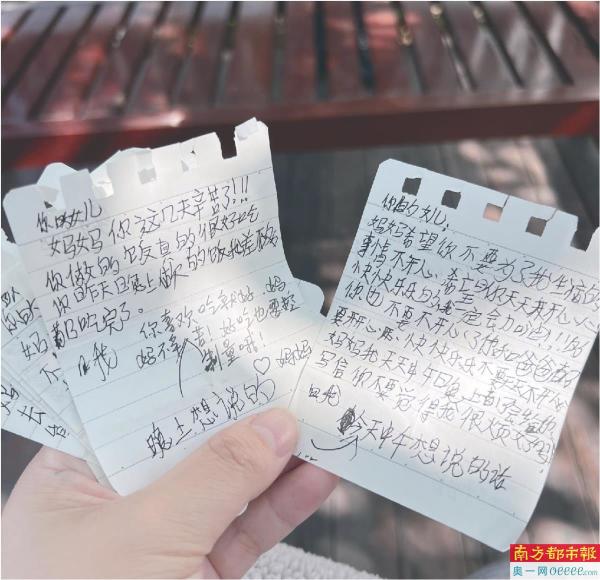 你的女儿
妈妈你这几天辛苦了!!!
你做的饭真的很好吃
你昨天晚上做的饭我差不多
都吃完了。
你喜欢吃就好 妈
妈不辛苦! 好吃也要轻
制量哦!
♡ 妈妈
回我
晚上想说的
你的女儿
妈妈希望你不要为了我生病的
事情不开心,希望你天天开心
快快乐乐的
你也不要不开心了你和爸爸都
要开心,快快乐乐不要不开心
妈妈我天天中午日晚上都
写信你不要觉得我很烦
回我
今天中午想说的话
南方都市报
奥一网oeeee.com